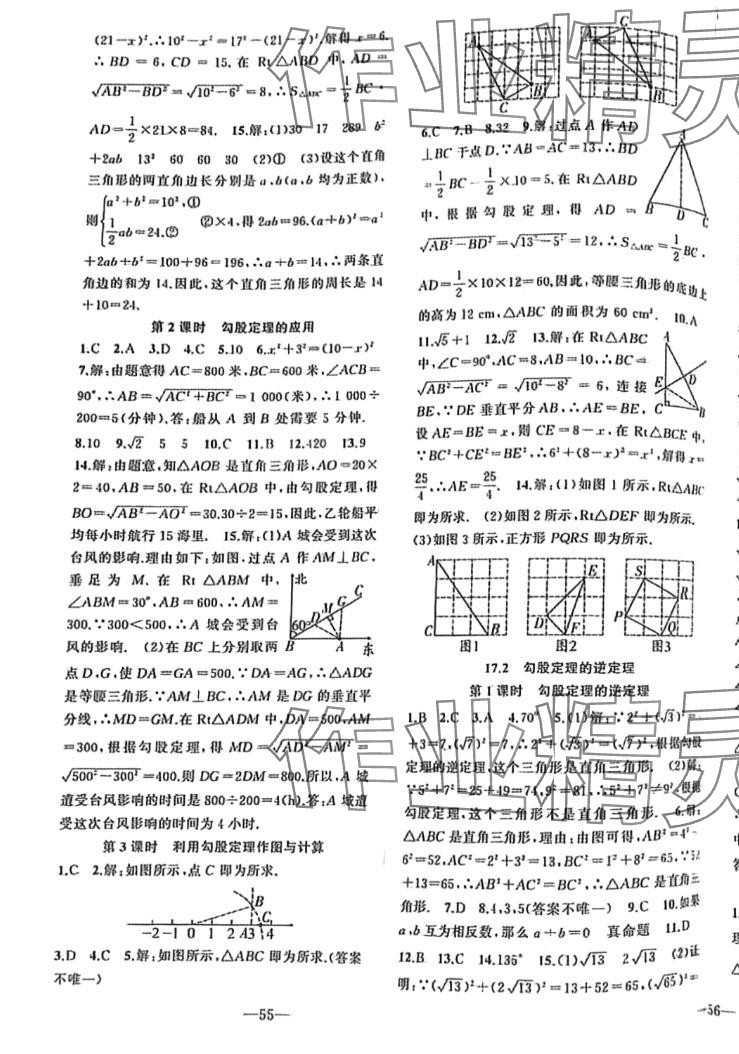 (21-x)².∴10²-x²=17²-(21-x)².解得x=6.
∴BD=6,CD=15.在Rt△ABD中,AD=
√AB²-BD²=√10²-6²=8,∴S△ABC=1/2BC·
AD=1/2×21×8=84. 15.解:(1)30 17 289 b²
+2ab 13² 60 60 30 (2)① (3)设这个直角
三角形的两直角边长分别是a、b(a、b均为正数),
则{a²+b²=10²,① 1/2ab=24.② ②×4,得2ab=96.(a+b)²=a²
+2ab+b²=100+96=196,∴a+b=14,∴两条直
角边的和为14.因此,这个直角三角形的周长是14
+10=24.
第2课时 勾股定理的应用
1.C 2.A 3.D 4.C 5.10 6.x²+3²=(10-x)²
7.解:由题意得AC=800米,BC=600米,∠ACB=
90°,∴AB=√AC²+BC²=1 000(米),∴1 000÷
200=5(分钟).答:船从A到B处需要5分钟.
8.10 9.√2 5 5 10.C 11.B 12.420 13.9
14.解:由题意,知△AOB是直角三角形,AO=20×
2=40,AB=50,在Rt△AOB中,由勾股定理,得
BO=√AB²-AO²=30.30÷2=15,因此,乙轮船平
均每小时航行15海里. 15.解:(1)A城会受到这次
台风的影响.理由如下:如图,过点A作AM⊥BC,
垂足为M.在Rt△ABM中,
∠ABM=30°,AB=600,∴AM=
300.∵300<500,∴A城会受到台
风的影响. (2)在BC上分别取两
北
C
G
M
D
60°
B
A
东
点D、G,使DA=GA=500.∵DA=GA,∴△ADG
是等腰三角形.∵AM⊥BC,∴AM是DG的垂直平
分线,∴MD=GM.在Rt△ADM中,DA=500,AM
=300,根据勾股定理,得MD=√AD²-AM²=
√500²-300²=400.则DG=2DM=800.所以,A城
遭受台风影响的时间是800÷200=4(h).答:A城遭
受这次台风影响的时间为4小时.
第3课时 利用勾股定理作图与计算
1.C 2.解:如图所示,点C即为所求.
B
C
-2 -1 0 1 2 3 4
3.D 4.C 5.解:如图所示,△ABC即为所求.(答案
不唯一)
—55—
A
B
C
C
A
B
6.C 7.B 8.32 9.解:过点A作AD
⊥BC于点D.∵AB=AC=13,∴BD
=1/2BC=1/2×10=5.在Rt△ABD
中,根据勾股定理,得AD=
A
B
D
C
√AB²-BD²=√13²-5²=12,∴S△ABC=1/2BC·
AD=1/2×10×12=60.因此,等腰三角形的底边上
的高为12 cm,△ABC的面积为60 cm². 10.A
11.√5+1 12.√2 13.解:在Rt△ABC
中,∠C=90°,AC=8,AB=10,∴BC=
√AB²-AC²=√10²-8²=6,连接
BE,∵DE垂直平分AB,∴AE=BE,
设AE=BE=x,则CE=8-x,在Rt△BCE中,
A
E
D
C
B
∵BC²+CE²=BE²,∴6²+(8-x)²=x²,解得x=
25/4,∴AE=25/4. 14.解:(1)如图1所示,Rt△ABC
即为所求. (2)如图2所示,Rt△DEF即为所示.
(3)如图3所示,正方形PQRS即为所示.
A
C
B
图1
E
D
F
图2
S
R
P
Q
图3
17.2 勾股定理的逆定理
第1课时 勾股定理的逆定理
1.B 2.C 3.A 4.70° 5.(1)解:∵2²+(√3)²=4
+3=7,(√7)²=7,∴2²+(√3)²=(√7)²,根据勾股
定理的逆定理,这个三角形是直角三角形. (2)解:
∵5²+7²=25+49=74,9²=81,∴5²+7²≠9²,根据
勾股定理,这个三角形不是直角三角形. 6.解:
△ABC是直角三角形,理由:由图可得,AB²=4²+
6²=52,AC²=2²+3²=13,BC²=1²+8²=65,∵52
+13=65,∴AB²+AC²=BC²,∴△ABC是直角三
角形. 7.D 8.4,3,5(答案不唯一) 9.C 10.如果
a、b互为相反数,那么a+b=0 真命题 11.D
12.B 13.C 14.136° 15.(1)√13 2√13 (2)证
明:∵(√13)²+(2√13)²=13+52=65,(√65)²=
—56—
作业精灵
作业精灵